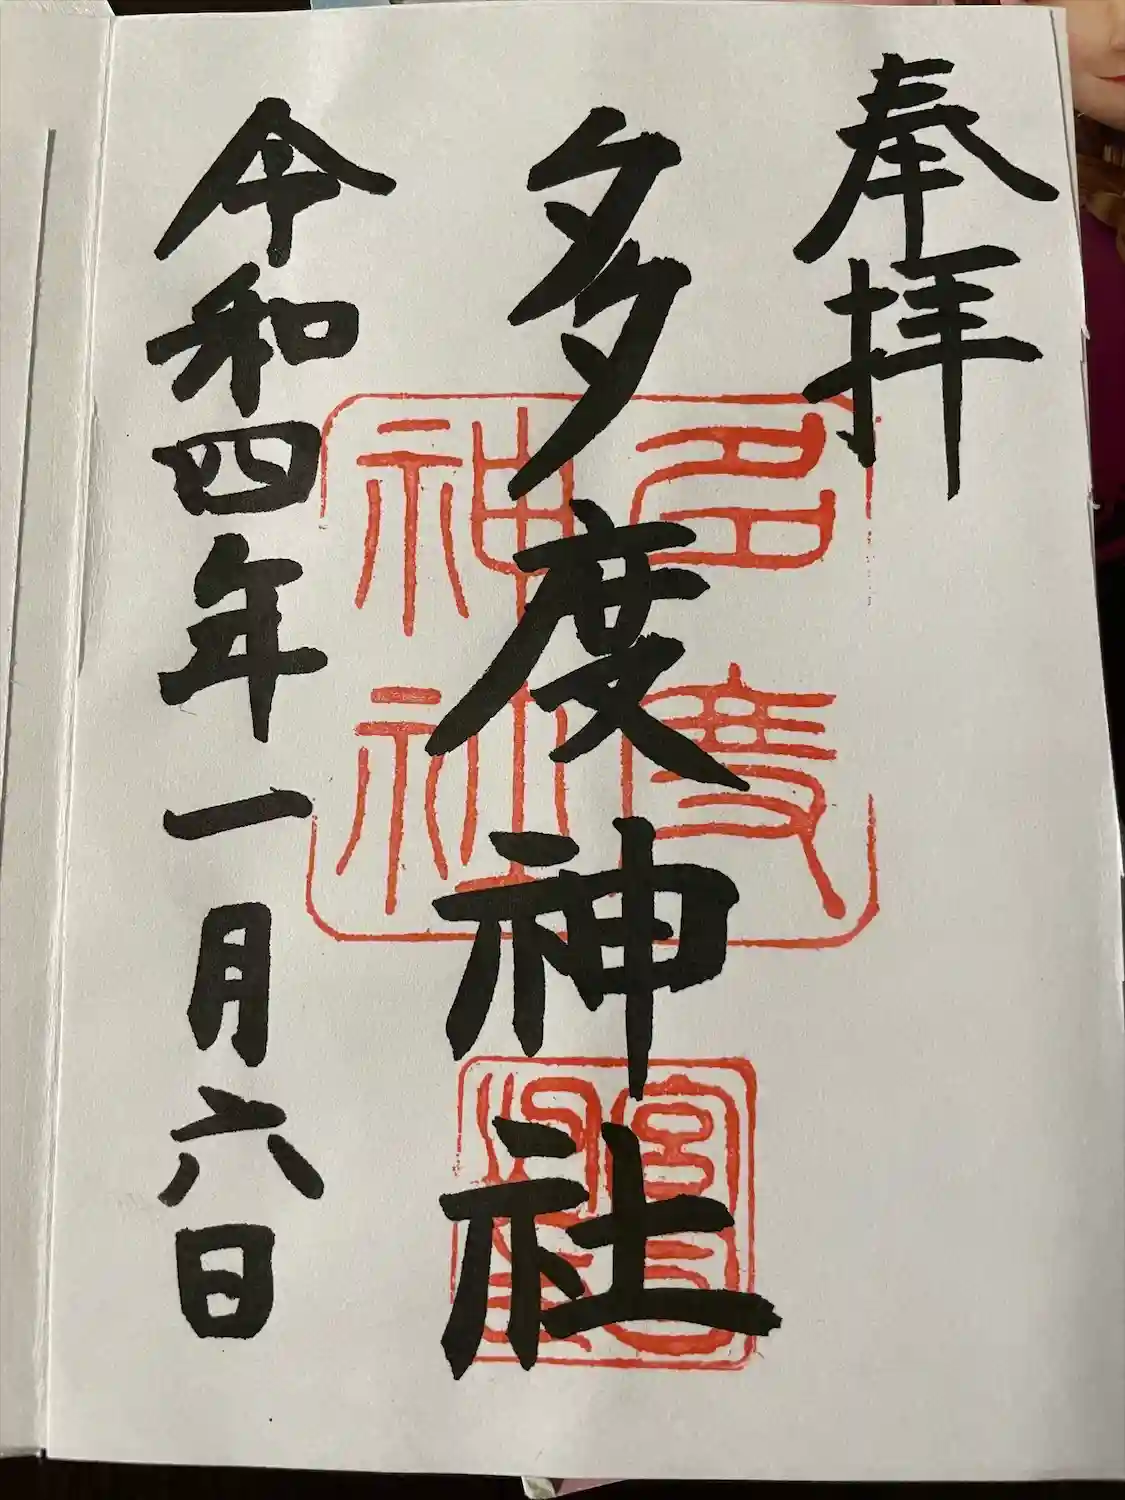 奉拝
多度神社
令和四年一月六日
多度
神社